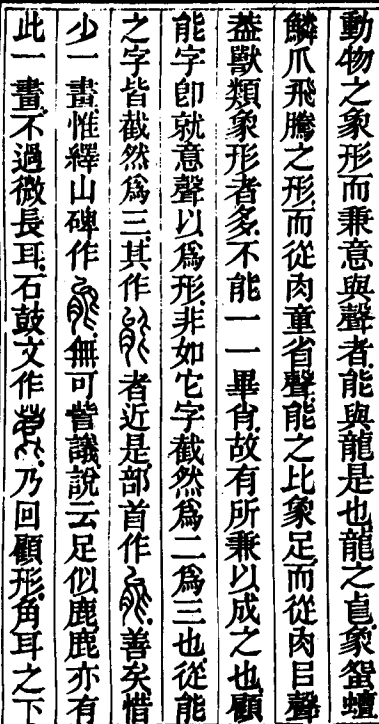 動物之象形而兼意與聲者能與龍是也龍之㡭象
鱗爪飛騰之形而從肉童省聲能之比象足而從肉㠯聲
葢獸類象形者多不能一一畢肖故有所兼以成之也顧
能字卽就意聲以爲形非如它字截然爲二爲三也從能
之字皆截然爲三其作者近是部首作善矣惜
少一畫惟繹山碑作無可訾議說云足似鹿鹿亦有
此一畫不過微長耳石鼓文作乃回顧形角耳之下